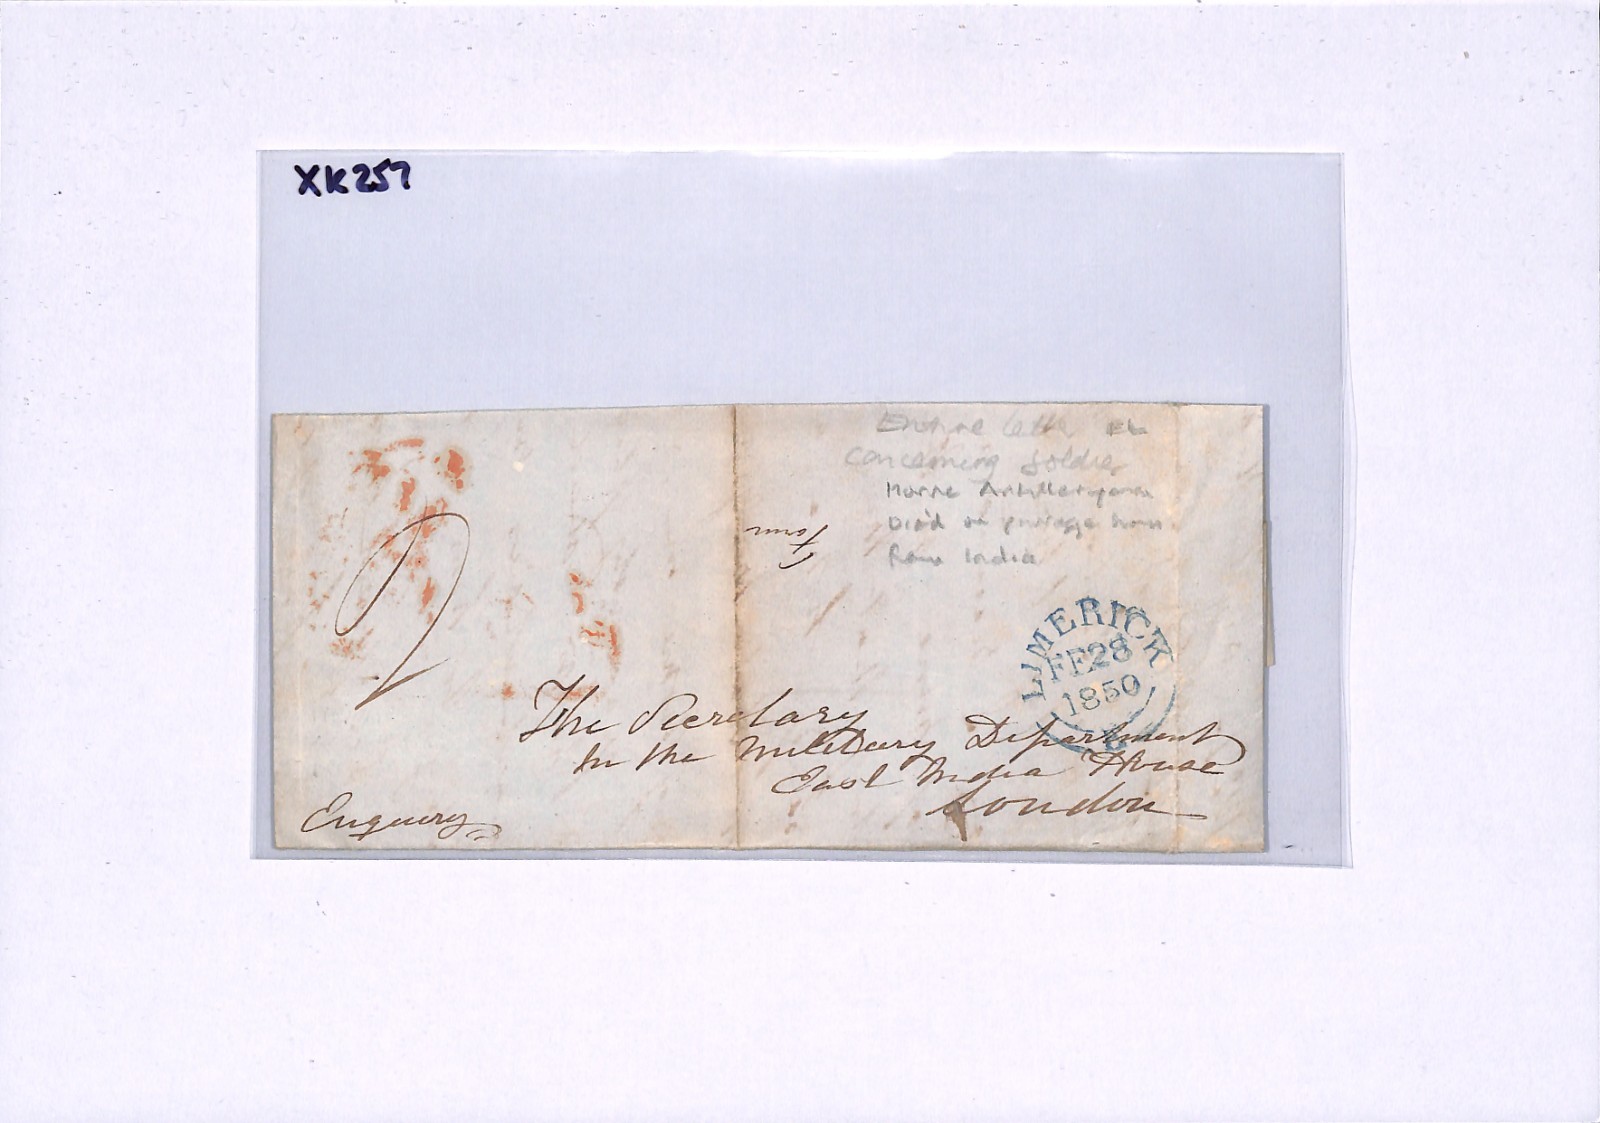 XK257
Entire letter
concerning soldier
Horse Artilleryman
Died on passage home
from India
LIMERICK
FE28
1850
The Secretary
In the Military Department
East India House
London
Enquiry